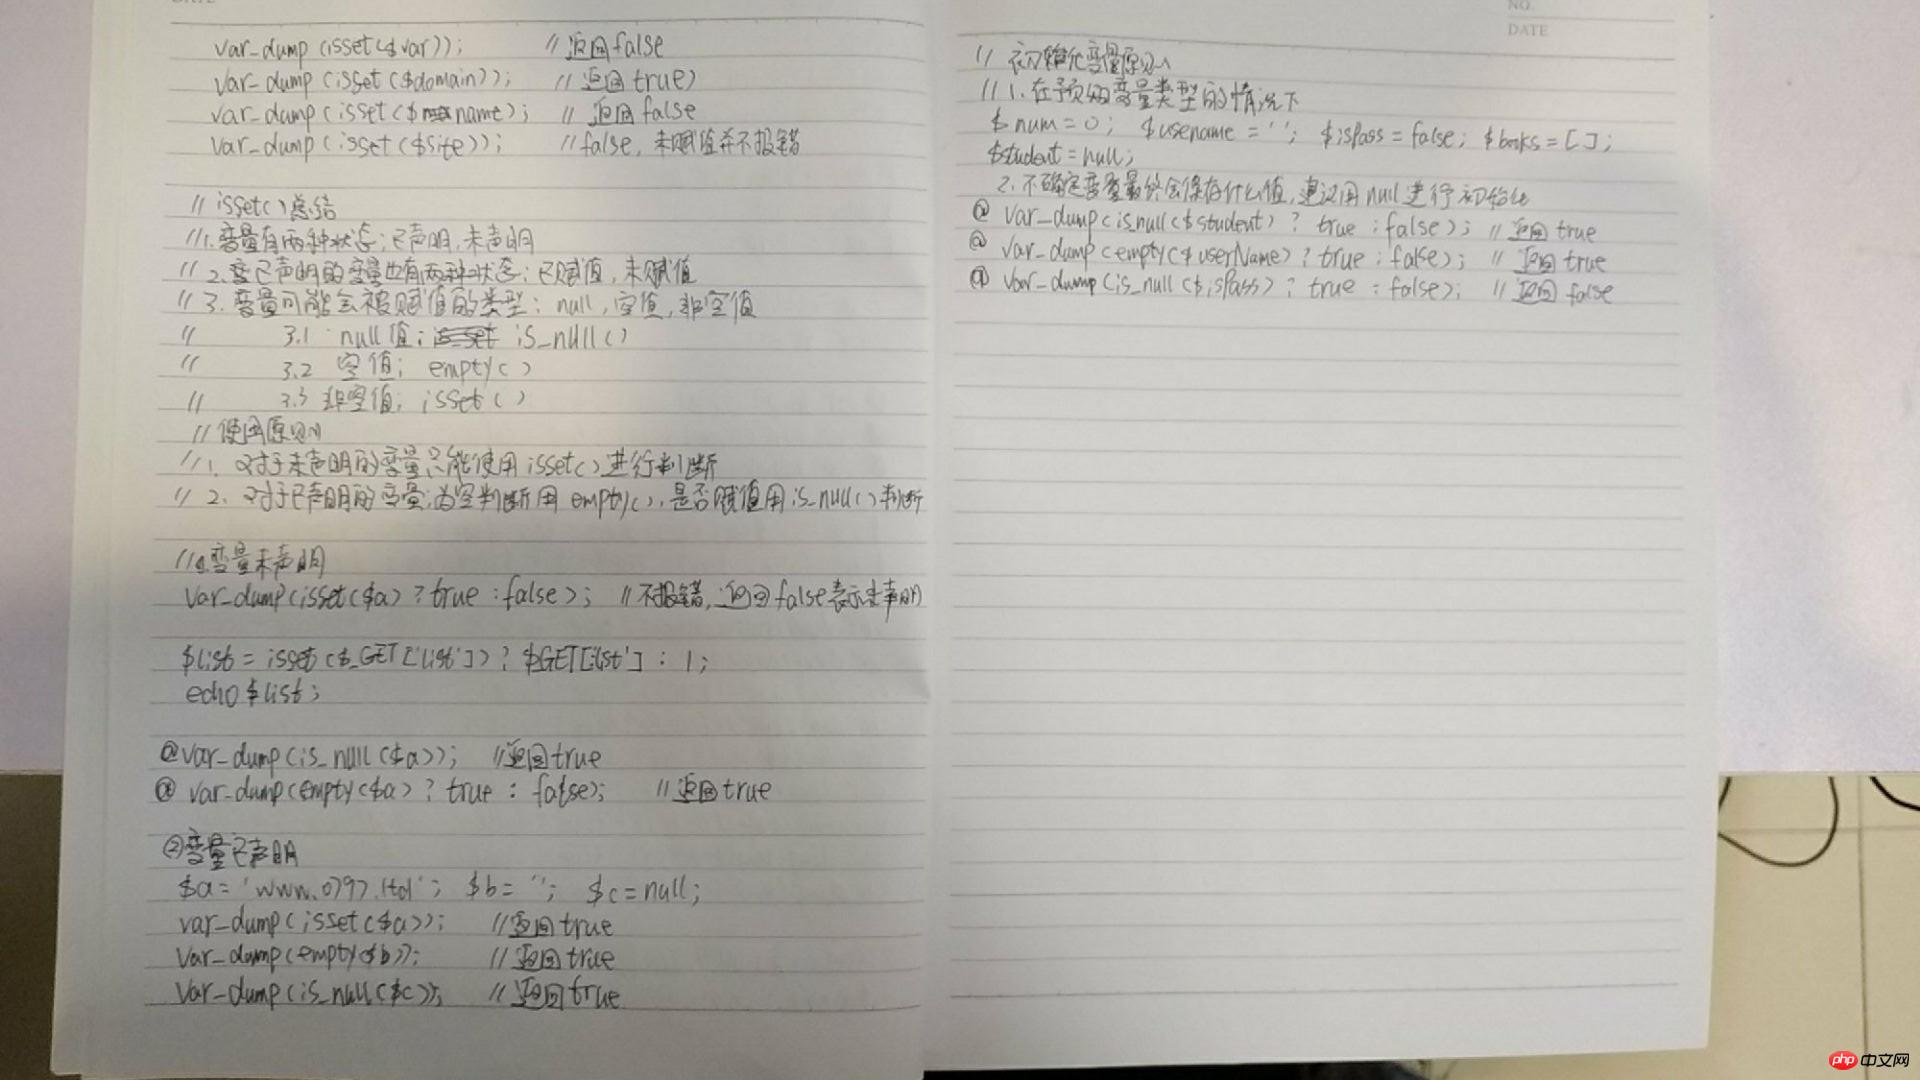 var_dump (isset($var)); // 返回false
var_dump (isset($domain)); // 返回 true)
var_dump (isset($name); // 返回 false
var_dump (isset($site)); // false, 未赋值并不报错
// isset()总结
// 1.变量有两种状态:已声明,未声明
// 2.已声明的变量也有两种状态:已赋值,未赋值
// 3.变量可能会被赋值的类型: null,空值,非空值
// 3.1 null值: is_null()
// 3.2 空值: empty()
// 3.3 非空值: isset()
// 使用原则
// 1. 对于未声明的变量只能使用isset()进行判断
// 2. 对于已声明的变量,为空判断用 empty(),是否赋值用is_null()判断
变量未声明
var_dump(isset($a) ? true : false); // 不报错,返回false表示未声明
$list = isset($_GET['list']) ? $GET['list'] : 1;
echo $list;
@var_dump(is_null($a)); //返回true
@ var_dump(empty($a) ? true : false); // 返回true
②变量已声明
$a = 'www.0797.ltd'; $b = ''; $c = null;
var_dump(isset($a)); //返回true
Var_dump(empty($b)); // 返回true
Var_dump(is_null($c)); // 返回true
NO.
DATE
// 初始化变量原则
// 1.在预知变量类型的情况下
$num = 0; $usename = ''; $isPass = false; $books = [];
$student = null;
2.不确定变量最终会保存什么值,建议用null进行初始化
@ var_dump(is_null($student) ? true : false); // 返回true
@ var_dump(empty($userName) ? true : false); // 返回true
@ var_dump(is_null($isPass) ? true : false); // 返回 false
php 中文网